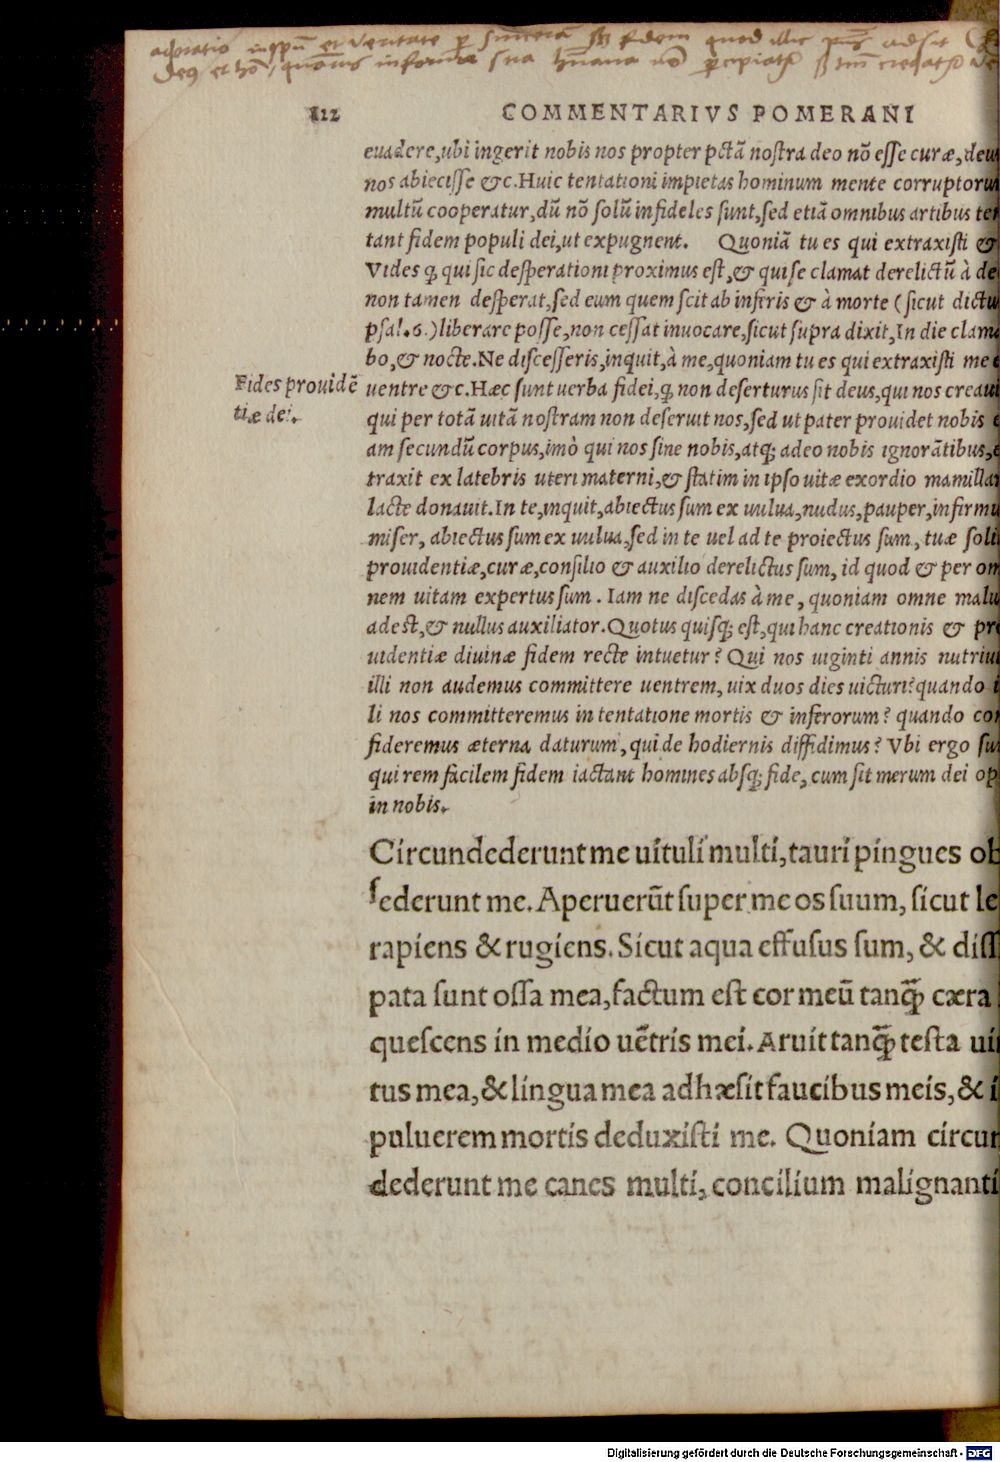 adoratio in spũ et veritate p̲ sinceram fidem quod illic adsit
Deꝯ et hõ, quãuis in forma sua hũana nõ p̲cipiat
112 COMMENTARIVS POMERANI
euadere,ubi ingerit nobis nos propter pctã nostra deo nõ esse curæ,deus
nos abiecisse &c.Huic tentationi impietas hominum mente corruptorum
multũ cooperatur,dũ nõ solũ infideles sunt,sed etiã omnibus artibus ten
tant fidem populi dei,ut expugnent. Quoniã tu es qui extraxisti &
Vides ꝙ qui sic desperationi proximus est,& qui se clamat derelictũ à de
non tamen desperat,sed eum quem scit ab inferis & à morte (sicut dictu
psal.6.)liberare posse,non cessat inuocare,sicut supra dixit,In die clama
bo,& nocte.Ne discesseris,inquit,à me,quoniam tu es qui extraxisti me e
Fides prouidẽ
tiæ dei.
uentre &c.Hæc sunt uerba fidei,ꝙ non deserturus sit deus,qui nos creaui
qui per totã uitã nostram non deseruit nos,sed ut pater prouidet nobis e
am secundũ corpus,imò qui nos sine nobis,atq; adeo nobis ignorãtibus,e
traxit ex latebris uteri materni,& statim in ipso uitæ exordio mamillar
lacte donauit.In te,inquit,abiectus sum ex uulua,nudus,pauper,infirmu
miser, abiectus sum ex uulua,sed in te uel ad te proiectus sum, tuæ soli
prouidentiæ,curæ,consilio & auxilio derelictus sum, id quod & per om
nem uitam expertus sum. Iam ne discedas à me, quoniam omne malu
adest,& nullus auxiliator.Quotus quisq; est,qui hanc creationis & pro
uidentiæ diuinæ fidem recte intuetur? Qui nos uiginti annis nutriui
illi non audemus committere uentrem, uix duos dies uicturi?quando i
li nos committeremus in tentatione mortis & inferorum? quando con
fideremus æterna daturum, qui de hodiernis diffidimus? Vbi ergo su
qui rem facilem fidem iactant homines absq; fide, cum sit merum dei op
in nobis.
Circundederunt me uituli multi,tauri pingues ob
sederunt me. Aperuerũt super me os suum, sicut le
rapiens & rugiens. Sicut aqua effusus sum, & diss
pata sunt ossa mea,factum est cor meũ tanꝙ̃ cæra
quescens in medio uẽtris mei. Aruit tanꝙ̃ testa uir
tus mea,& lingua mea adhæsit faucibus meis,& i
puluerem mortis deduxisti me. Quoniam circun
dederunt me canes multi, concilium malignanti
Digitalisierung gefördert durch die Deutsche Forschungsgemeinschaft - DFG